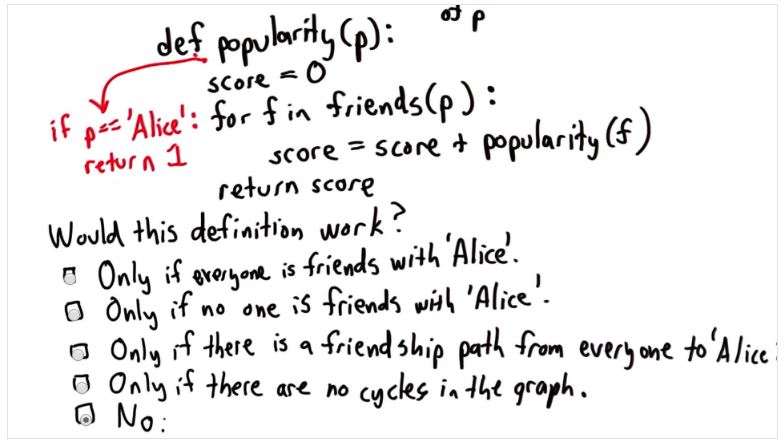 of p
def popularity(p):
score = 0
if p=='Alice': for f in friends(p):
return 1
score = score + popularity(f)
return score
Would this definition work?
Only if everyone is friends with 'Alice'.
Only if no one is friends with 'Alice'.
Only if there is a friendship path from everyone to 'Alice'
Only if there are no cycles in the graph.
No.